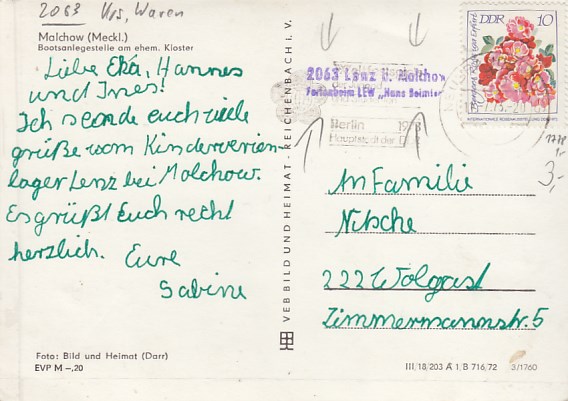 2063 Krs, Waren
Malchow (Meckl.)
Bootsanlegestelle am ehem. Kloster
Liebe Eka, Hannes
und Ines!
Ich sende euch viele
grüße vom Kinderverien-
lager Lenz bei Molchow.
Es grüßt Euch recht
herzlich. Eure
Sabine
Foto: Bild und Heimat (Darr)
EVP M –,20
VEB BILD UND HEIMAT · REICHENBACH i. V.
DDR 10
INTERNATIONALE ROSENAUSSTELLUNG DER DDR
2063 Lenz ü. Malchow
Ferienheim LEW „Hans Beimler
Berlin 1973
Hauptstadt der DDR
1778
3,-
An Familie
Nitsche
222 Wolgast
Zimmermannstr. 5
III/18/203 A 1, B 716/72 3/1760